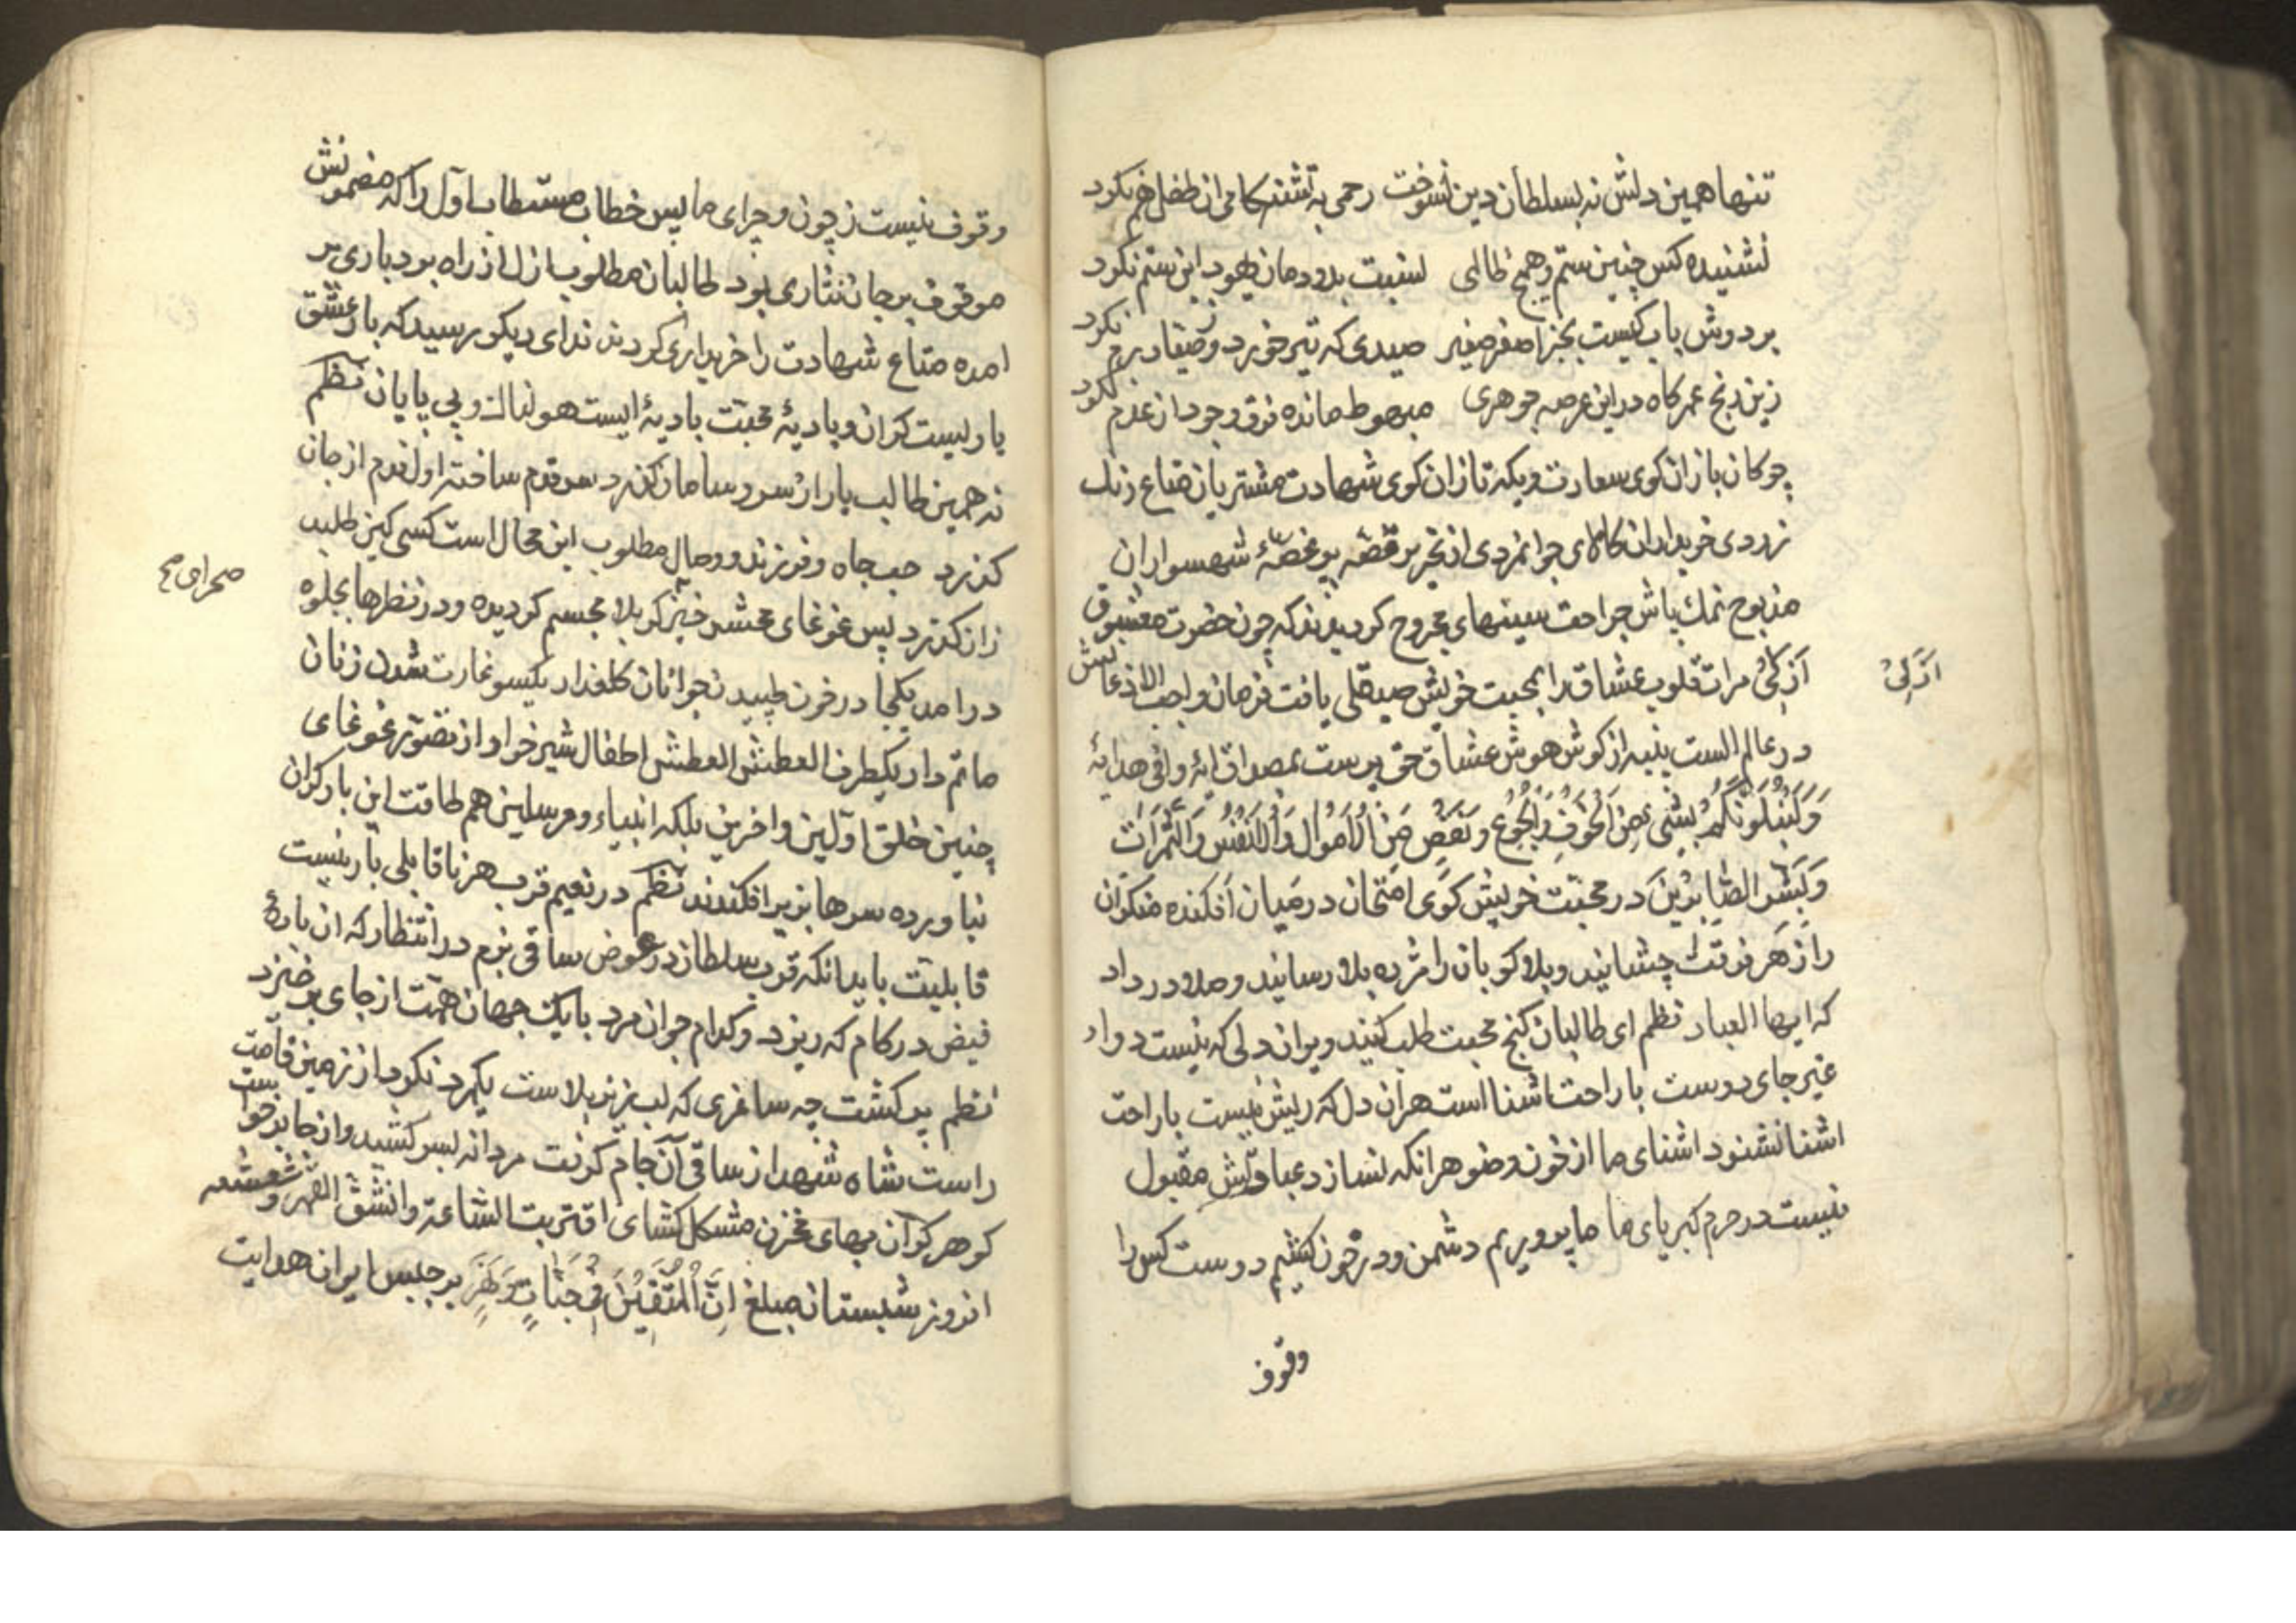 تنها همین دلش نه بسلطان دین نسوخت رحمی به تشنه کامی ان طفل هم نکرد
نشنیده کس چنین ستم و هیچ ظالمی نسبت بدودمان یهود این ستم نکرد
بر دوش باب کیست بجز اصغر صغیر صیدی که تیر خورد و ز صیاد رم نکرد
زین رنج عمر کاه در این عرصه جوهری مبهوط مانده فرق وجود از عدم نکرد
چوکان بازان کوی سعادت و یکه تازان کوی شهادت مشتریان متاع رنک
زردی خریداران کالای جوانمردی از تحریر قصه پر غصهٔ شهسواران
مذبوح نمک پاش جراحت سینهای مجروح کردیدند که چون حضرت معشوق
ازلی مرات قلوب عشاق را بمحبت خویش صیقلی یافت فرمان واجب الاذعانش
ازلی
در عالم الست پنبه از کوش هوش عشاق حق پرست بمصداق ایهٔ وافی هدایهٔ
وَلَنَبْلُوَنَّكُمْ بِشَیْءٍ مِنَ الْخَوْفِ وَالْجُوعِ وَنَقْصٍ مِنَ الْاَمْوَالِ وَالْاَنْفُسِ وَالثَّمَرَاتِ
وَبَشِّرِ الصَّابِرِیْنَ در محبت خویش کوی امتحان در میان افکنده منکران
را زهر فرقت چشانید و بلا کویان را مژده بلا رسانید و صلا در داد
که ایها العباد نظم ای طالبان کنج محبت طلب کنید ویران دلی که نیست در او
غیر جای دوست با راحت اشنا است هر ان دل که ریش نیست با راحت
اشنا نشنود اشنای ما از خون وضو هر انکه نسازد عبادتش مقبول
نیست در حرم کبریای ما ما پروریم دشمن و در خون کشیم دوست کس را
وقوف
وقوف نیست ز چون و چرای ما پس خطاب مستطاب اول را که مضمونش
موقوف بر جان نثاری بود طالبان مطلوب ازل از راه بردباری بر
امده متاع شهادت را خریداری کردند ندای دیکر رسید که بار عشق
باریست کران و بادیهٔ محبت بادیهٔ ایست هولناک و بی پایان نظم
نه همین طالب یار از سر و سامان کذرد سر قدم ساخته اول قدم از جان
کذرد حب جاه و فرزند و وصال مطلوب این محال است کسی کین طلبد
زان کذرد پس غوغای محشر خیز کربلا مجسم کردیده و در نظرها بجلوه
صحرای صح
در امد یکجا در خون طپیدن جوانان کلعذار یکسو غارت شدن زنان
ماتم دار یکطرف العطش العطش اطفال شیر خوار و از تصور غوغای
چنین خلق اولین و اخرین بلکه انبیاء و مرسلین هم طاقت این بار کران
نیاورده سرها بزیر افکندند نظم در نعیم قرب هر ناقابلی بار نیست
قابلیت باید انکه قرب سلطان در عوض ساقی بزم در انتظار که ان بادهٔ
فیض در کام که ریزد و کدام جوان مرد با یک جهان همت از جای برخیزد
نظم پر کشت چه ساغری که لبریز بلاست یکمرد نکرد از زمین قامت
راست شاه شهدا ز ساقی آن جام کرفت مردانه بسر کشید و از جا برخواست
کوهر کران بهای مخزن مشکل کشای اقتربت الساعة وانشق القمر و شعشعه
افروز شبستان مبلغ اِنَّ الْمُتَّقِیْنَ فِیْ جَنَّاتٍ وَنَهَرٍ برجیس ایوان هدایت